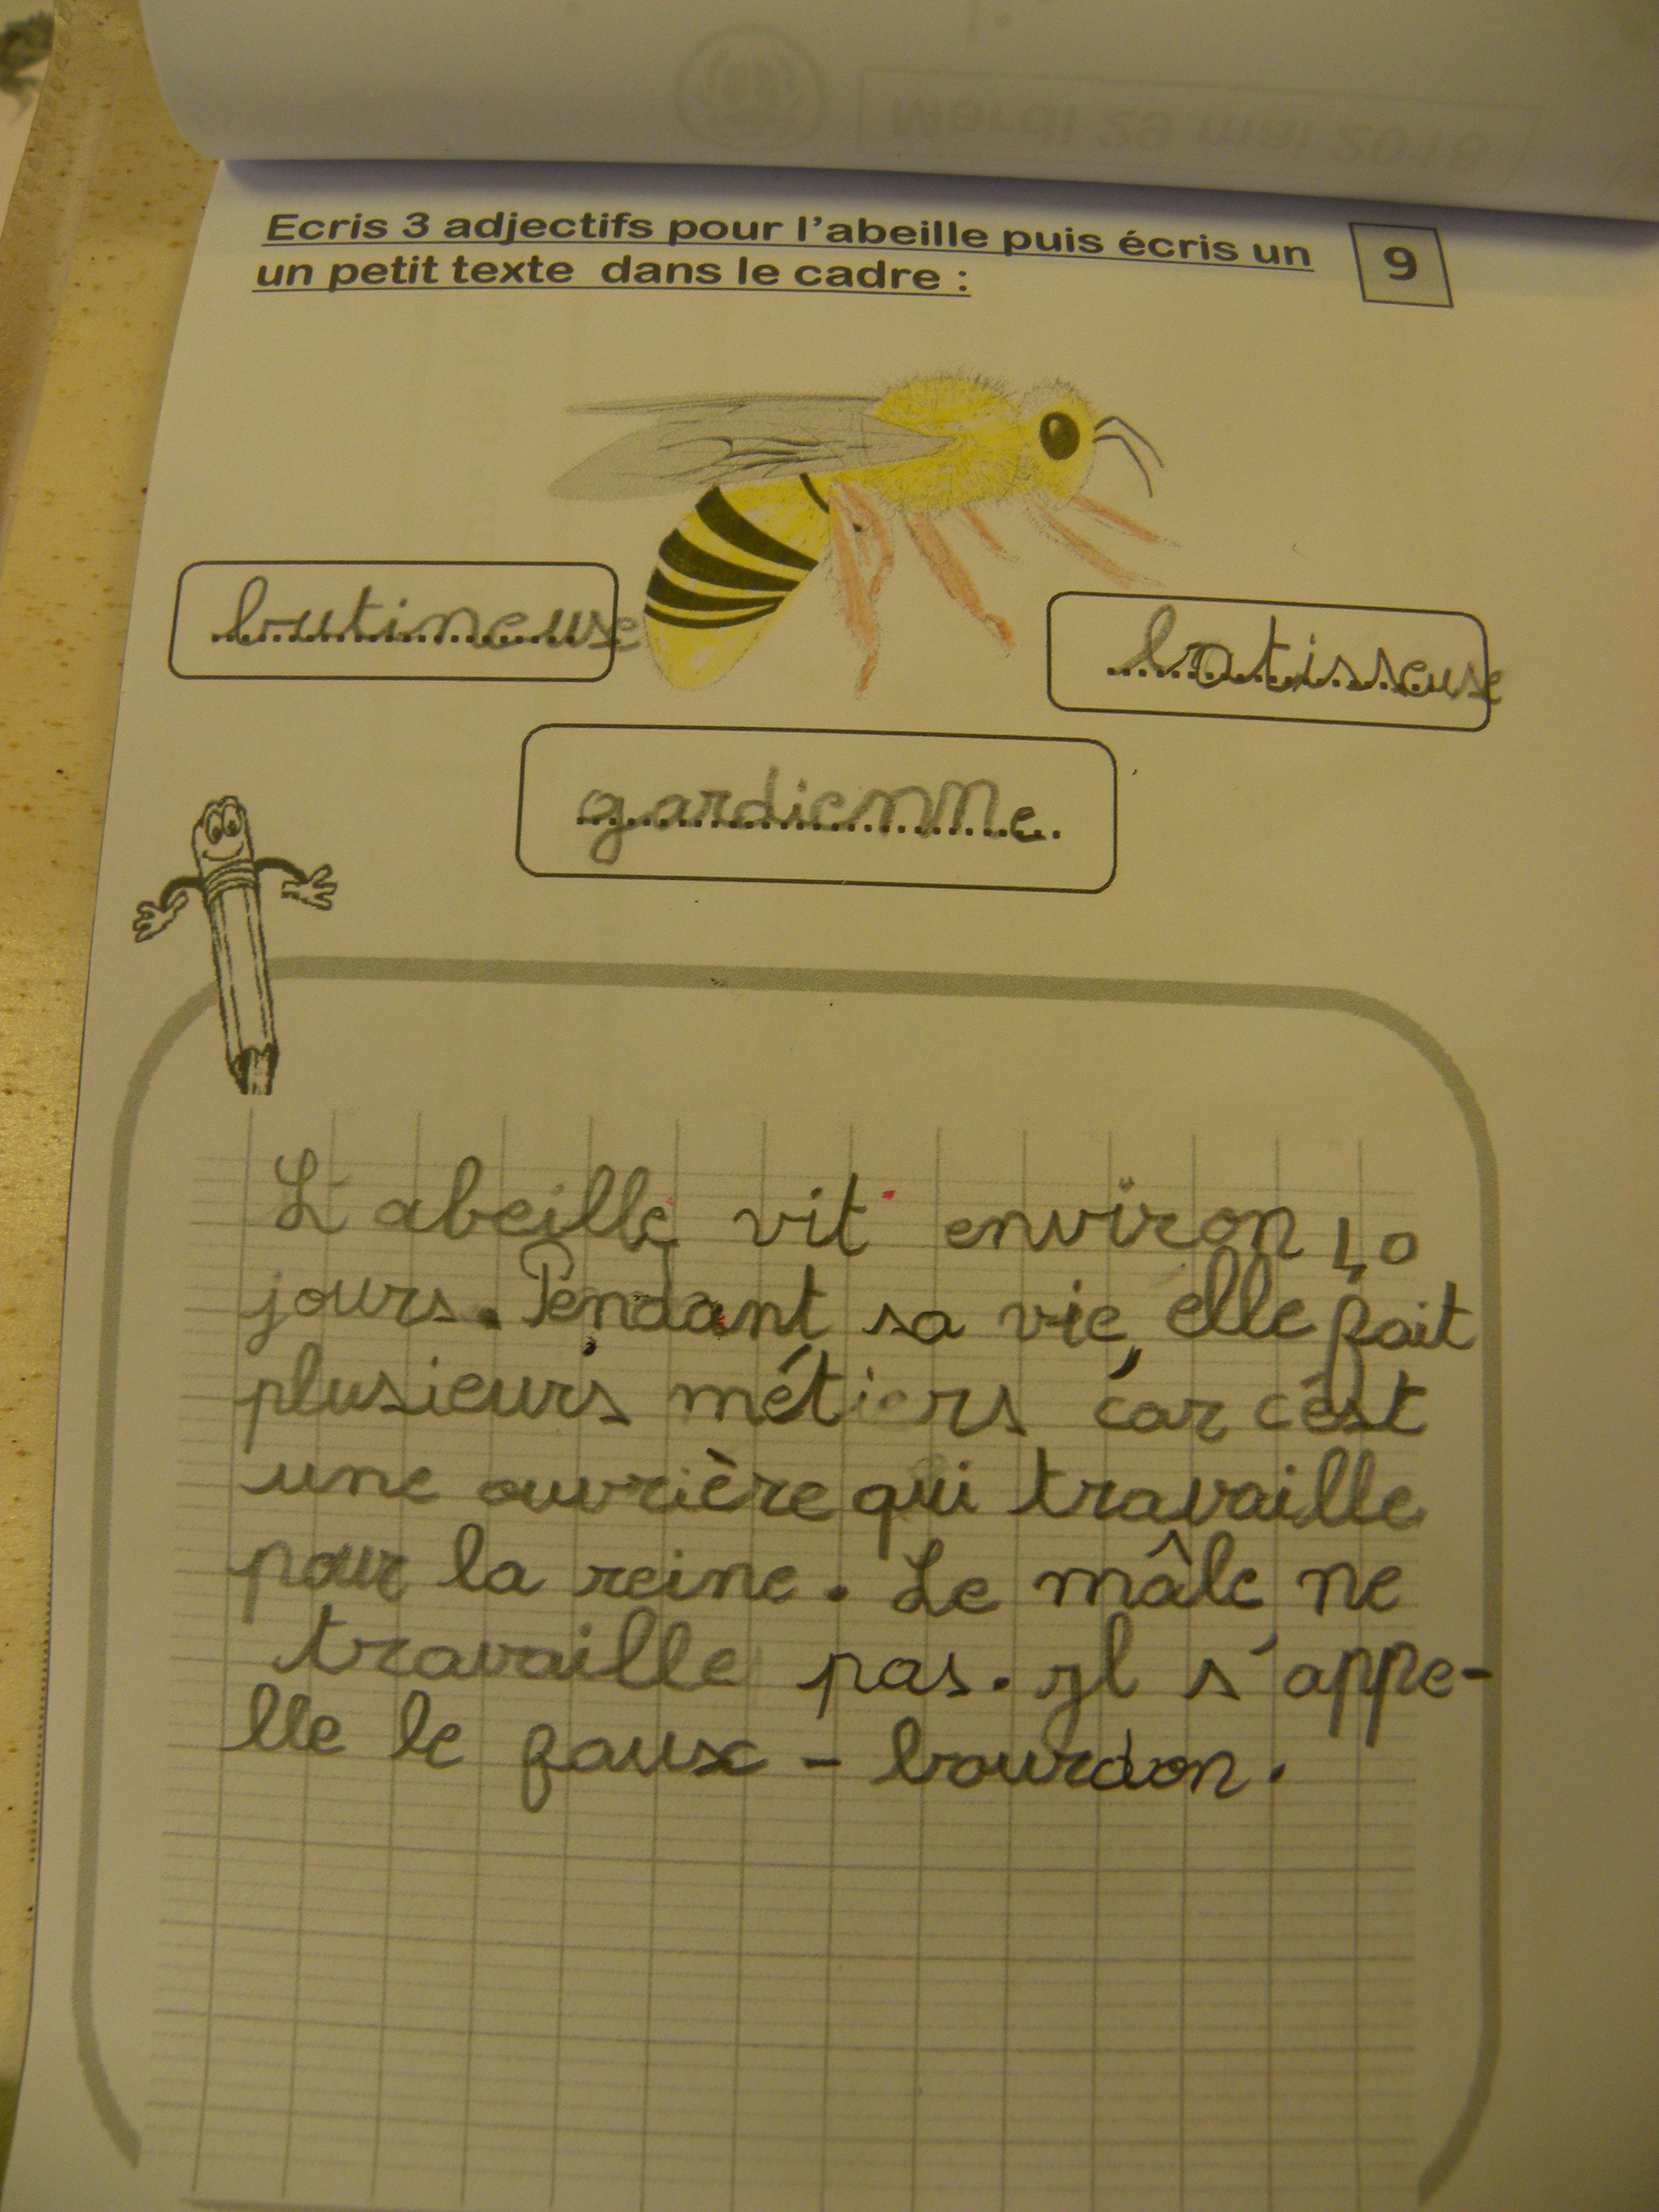 Mardi 29 mai 2018
Ecris 3 adjectifs pour l'abeille puis écris un
un petit texte dans le cadre :
9
butineuse
batisseuse
gardienne
L'abeille vit environ 40
jours. Pendant sa vie, elle fait
plusieurs métiers car c'est
une ouvrière qui travaille
pour la reine. Le mâle ne
travaille pas. Il s'appe-
lle le faux-bourdon.